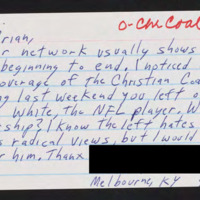 O-Chr Coal
rian,
r network usually shows
beginning to end. I noticed
overage of the Christian Coa
ng last weekend you left o
White, the NFL player. W
ership? I know the left hates
s radical views, but I would
r him. Thanx
Melbourne, KY